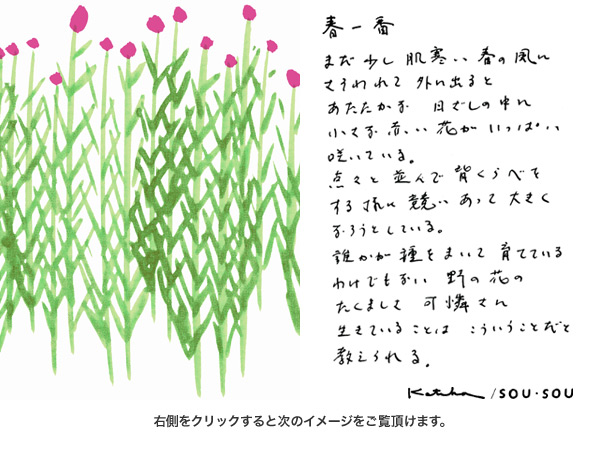 春一番
まだ少し肌寒い春の風に
さそわれて外に出ると
あたたかな日ざしの中に
小さな赤い花がいっぱい
咲いている。
点々と並んで背くらべを
する様に競いあって大きく
なろうとしている。
誰かが種をまいて育てている
わけでもない野の花の
たくましさ可憐さに
生きていることはこういうことだと
教えられる。
Katsuka/SOU・SOU
右側をクリックすると次のイメージをご覧頂けます。